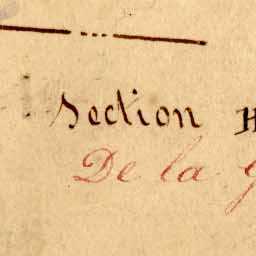 Section
De la